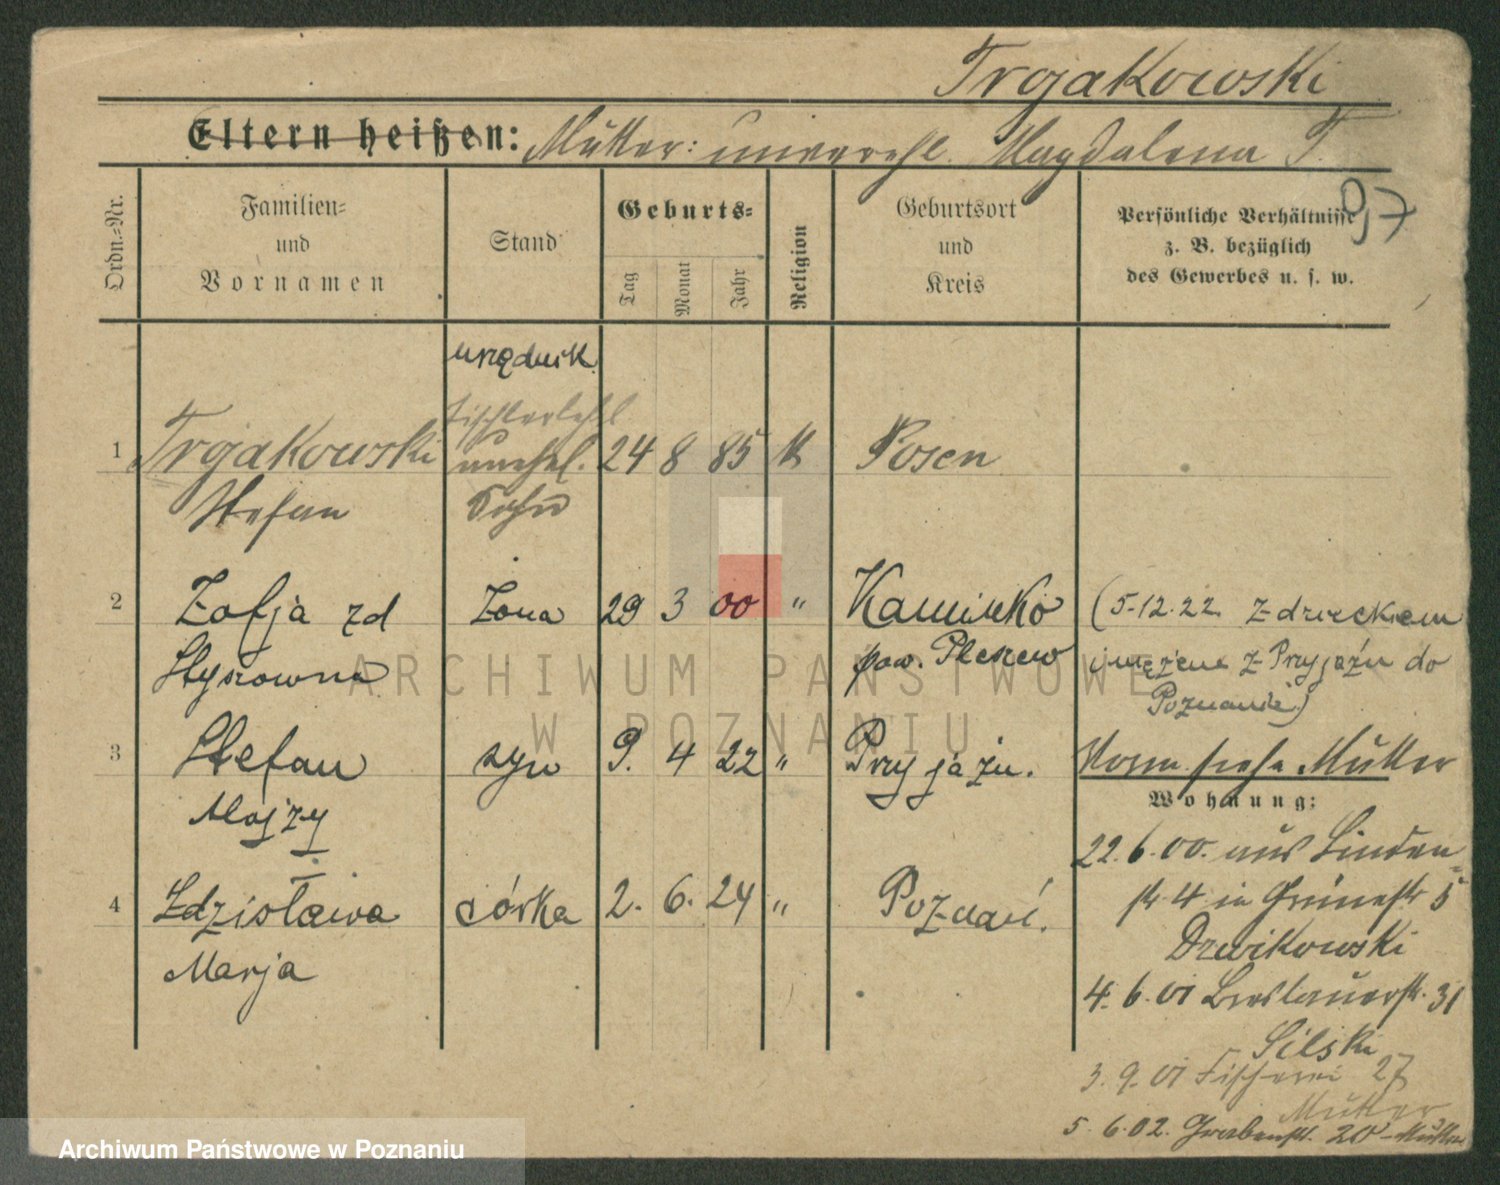 Trojakowski
Eltern heißen: Mutter: unverehl. Magdalena T.
97
Ordn.-Nr.
Familien-
und
Vornamen
Stand
Geburts-
Tag
Monat
Jahr
Religion
Geburtsort
und
Kreis
Persönliche Verhältnisse
z. B. bezüglich
des Gewerbes u. s. w.
urzędnik
Tischlerlehrl
1 Trojakowski unehel. 24 8 85 K Posen
Stefan Sohn
2 Zofja zd żona 29 3 00 " Kaminko (5.12.22 z dzieckiem
pow. Pleszew i mężem z Przyjaźni do
Poznania)
3 Stefan syn 9. 4 22 " Przyjaźń. Vorm siehe Mutter
Alojzy
Wohnung:
22.6.00. aus Linden-
str. 4 in Grünestr 5
4 Zdzisława córka 2. 6. 24 " Poznań.
Marja
4.6.01 Breslauerstr. 31
Silski
3.9.01 Fischerei 27
Mutter
5.6.02. Grabenstr. 20 - Mutter
ARCHIWUM PAŃSTWOWE
W POZNANIU
Archiwum Państwowe w Poznaniu